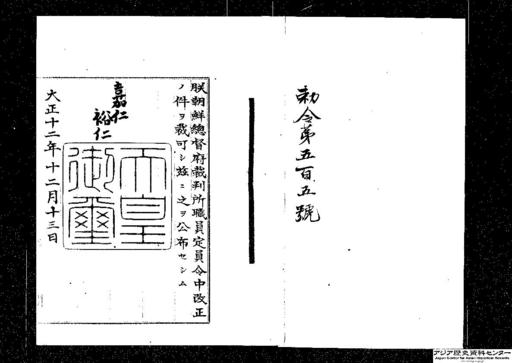 勅令第五百五號
朕朝鮮總督府裁判所職員定員令中改正
ノ件ヲ裁可シ玆ニ之ヲ公布セシム
嘉仁
裕仁
天皇
御璽
大正十二年十二月十三日
アジア歴史資料センター
Japan Center for Asian Historical Records